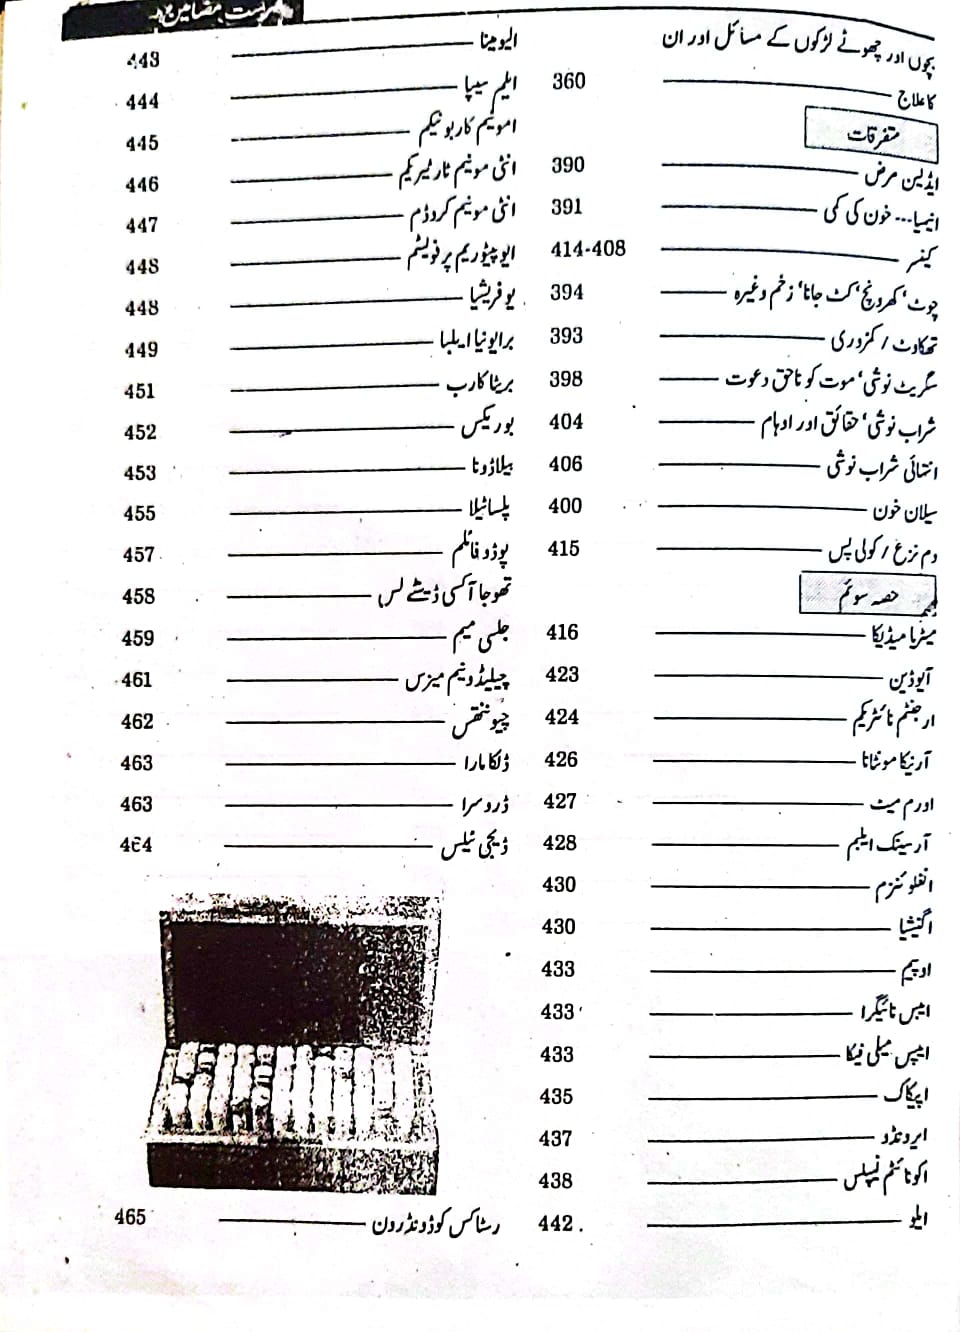 فہرست مضامین
بچوں اور چھوٹے لڑکوں کے مسائل اور ان
کا علاج 360
متفرقات
ایڈیسن مرض 390
انیمیا۔۔۔ خون کی کمی 391
کینسر 414-408
چوٹ‘ کھرونچ‘ کٹ جانا‘ زخم وغیرہ 394
تھکاوٹ / کمزوری 393
سگریٹ نوشی‘ موت کو ناحق دعوت 398
شراب نوشی‘ حقائق اور اوہام 404
انتہائی شراب نوشی 406
سیلان خون 400
دم نزع / کولی پس 415
حصہ سوئم
میٹریا میڈیکا 416
آیوڈین 423
ارجنٹم نائٹریکم 424
آرنیکا مونٹانا 426
اورم میٹ 427
آرسینک ایلبم 428
انفلوئنزم 430
اگنیشیا 430
اوپیم 433
ایبس نائیگرا 433
ایپس میلی فیکا 433
اپیکاک 435
ایرونڈو 437
اکونائٹم نیپلس 438
ایلو 442
الیومینا 443
ایلیم سیپا 444
امونیم کاربونیکم 445
انٹی مونیم ٹارٹیریکم 446
انٹی مونیم کروڈم 447
ایوپیٹوریم پرفولیٹم 448
یوفریشیا 448
برایونیا ایلبا 449
بریٹا کارب 451
بوریکس 452
بیلاڈونا 453
پلساٹیلا 455
پوڈوفائلم 457
تھوجا آکسی ڈینٹے لس 458
جلسی میم 459
چیلیڈونیم میزس 461
چیونتھس 462
ڈلکامارا 463
ڈروسرا 463
ڈیجی ٹیلس 464
رسٹاکس کوڈونڈرون 465